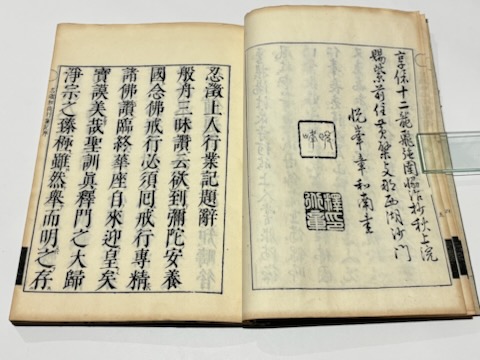 享保十二龍飛強圉協洽杪秋上浣
賜紫前住黄檗支那西湖沙門
悅峯章和南書
忍澂上人行業記題辭
般舟三昧讚云欲到彌陀安養
國念佛戒行必須囘戒行專精
諸佛讚臨終華座自來迎皇矣
寶謨美哉聖訓眞釋門之大歸
淨宗之臻極雖然舉而明之存